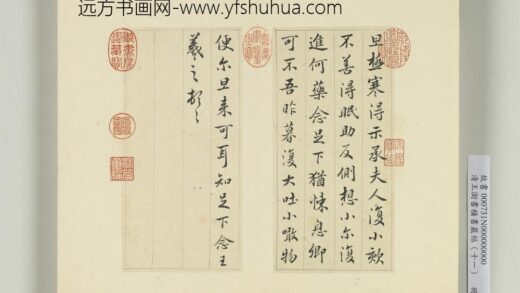 远方书画网-www.yfshuhua.com
旦極寒得示承夫人復小欬
不善得眠助反側想小尔復
進何藥念足下猶悚息卿
可不吾昨暮復大吐小噉物
便尔旦来可耳知足下念王
羲之頓首
故書 000731N000000000
清王澍書積書巖帖（十一）